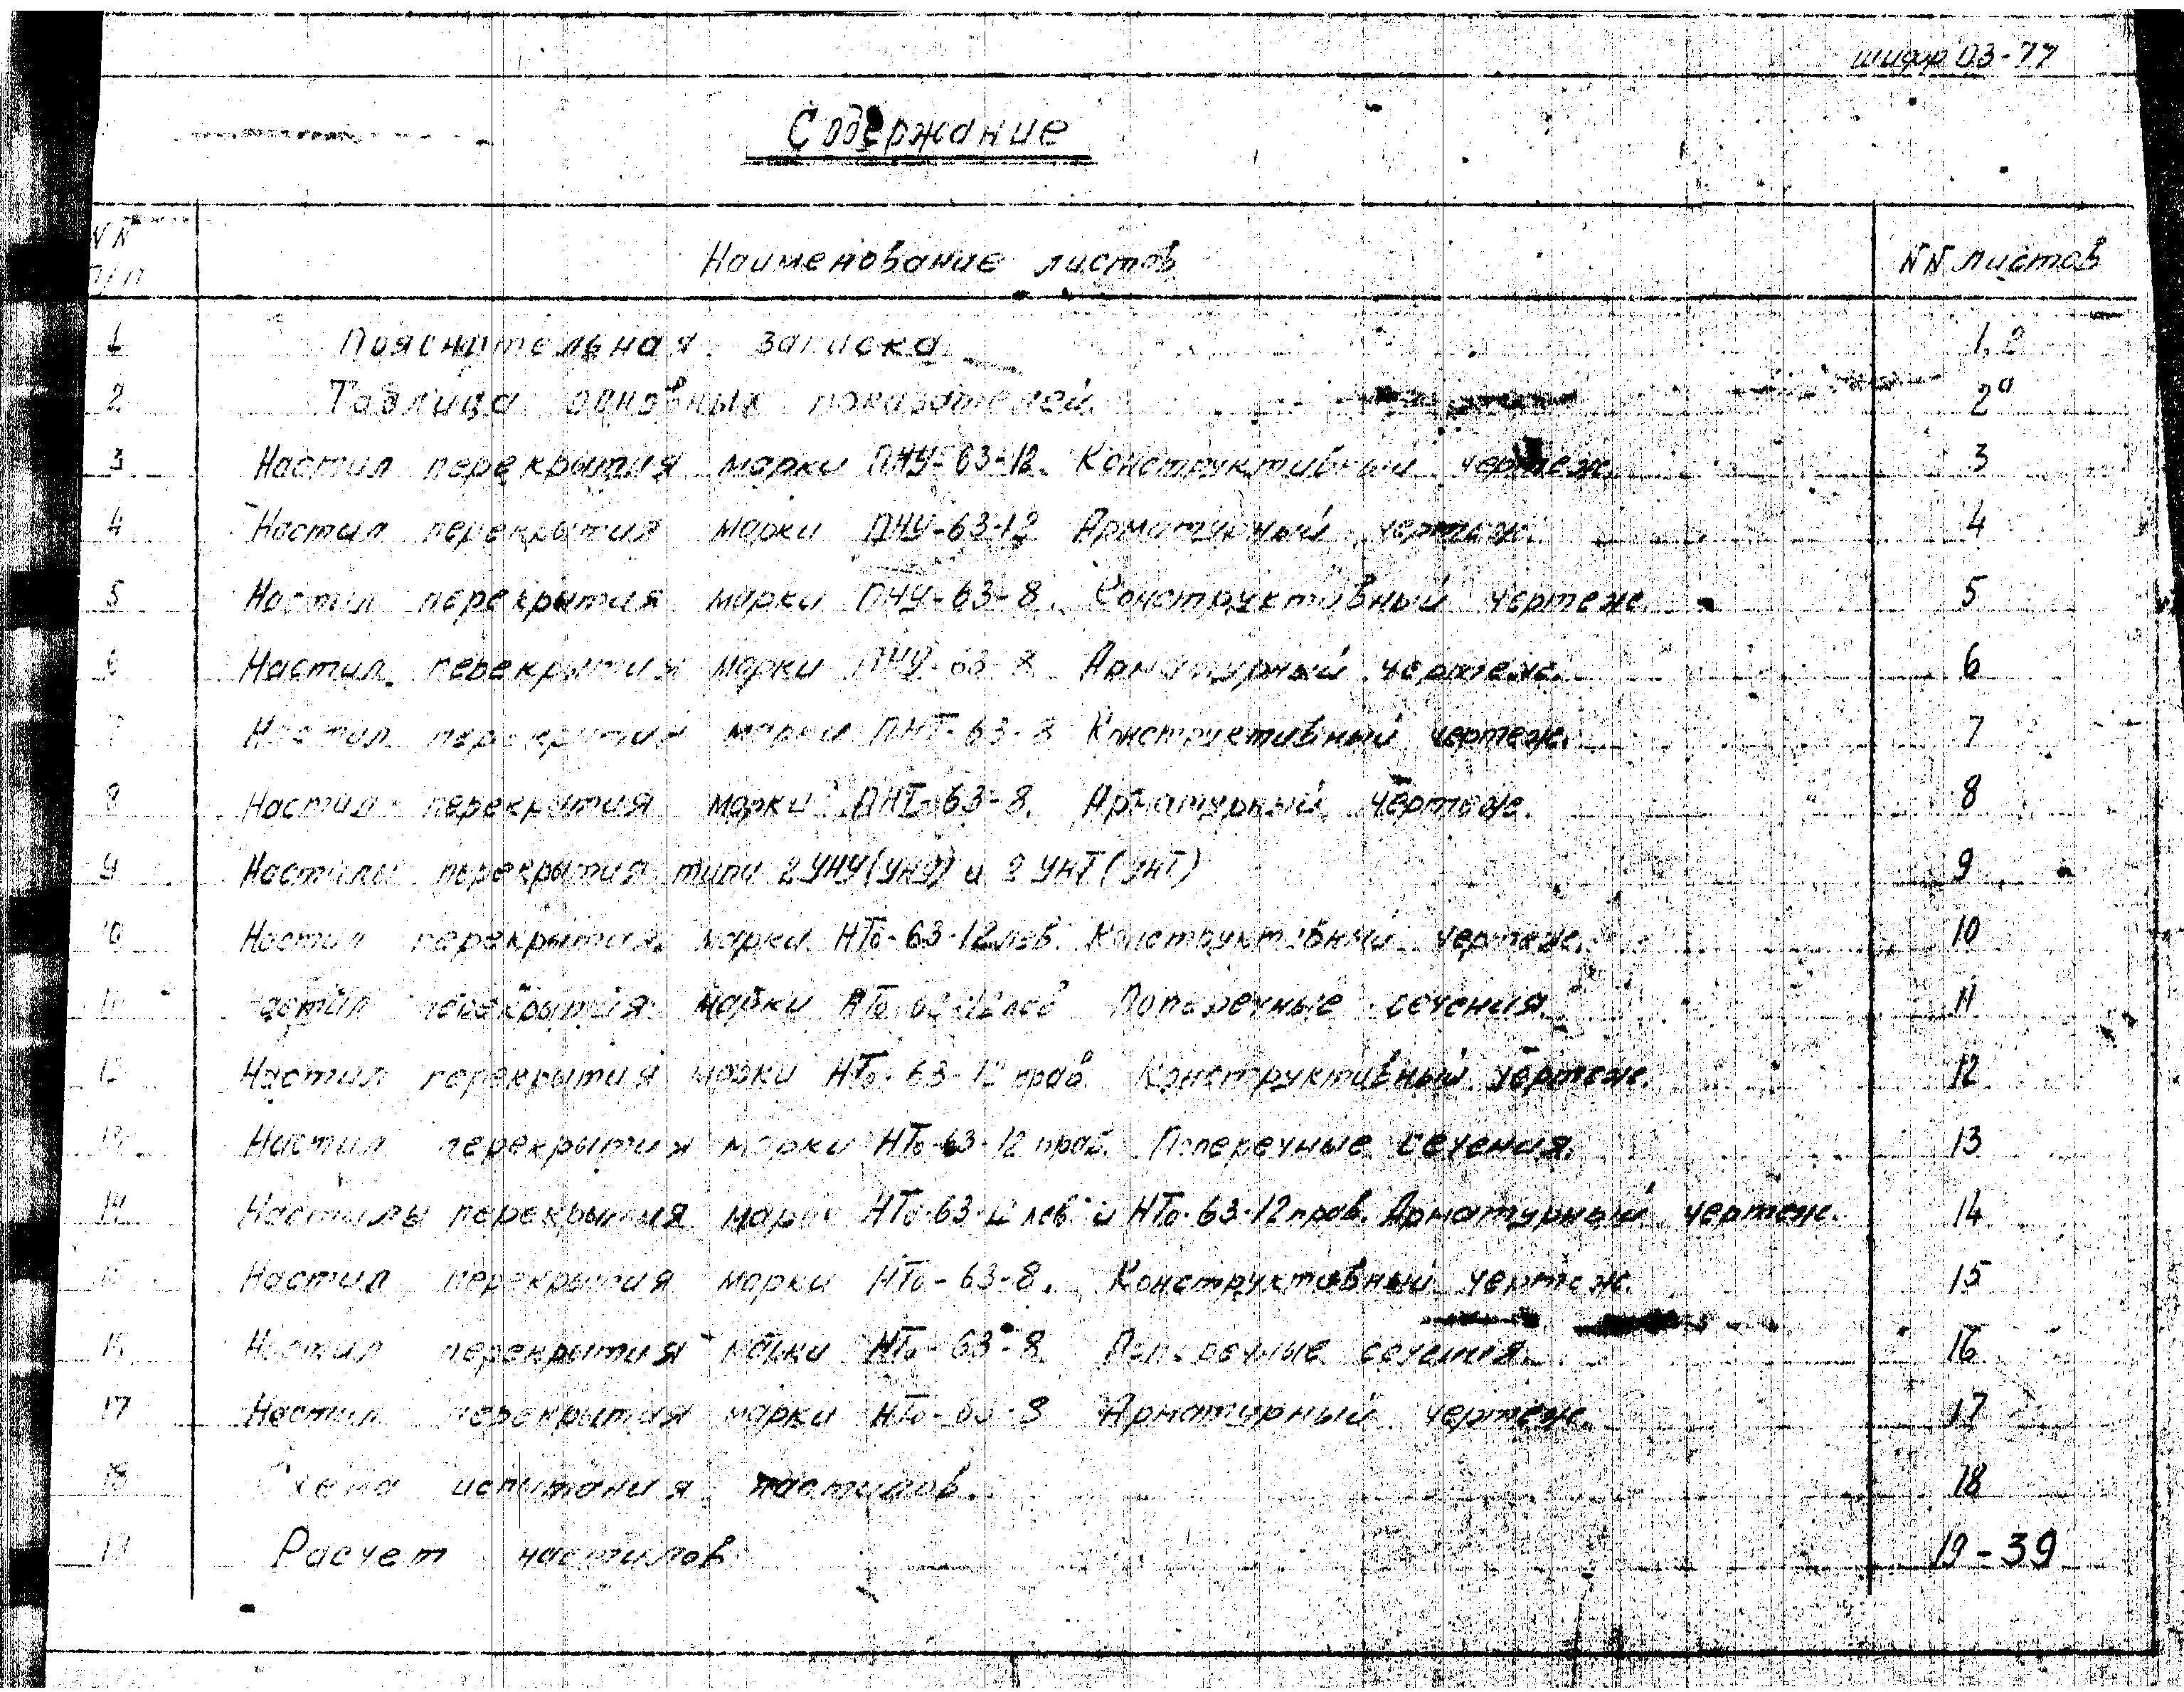 шифр 03-77
Содержание
NN п/п Наименование листов NN листов
1 Пояснительная записка 1,2
2 Таблица основных показателей. 2а
3 Настил перекрытия марки ПНУ-63-12. Конструктивный чертеж. 3
4 Настил перекрытия марки ПНУ-63-12 Арматурный чертеж. 4
5 Настил перекрытия марки ПНУ-63-8. Конструктивный чертеж. 5
6 Настил перекрытия марки ПНУ-63-8 Арматурный чертеж. 6
7 Настил перекрытия марки ПНТ-63-8 Конструктивный чертеж. 7
8 Настил перекрытия марки ПНТ-63-8. Арматурный чертеж. 8
9 Настилы перекрытия типа 2УНУ(УНУ) и 2УНТ(УНТ) 9
10 Настил перекрытия марки НТо-63-12лев. Конструктивный чертеж. 10
11 Настил перекрытия марки НТо-63-12лев Поперечные сечения. 11
12 Настил перекрытия марки НТо-63-12прав. Конструктивный чертеж. 12
13 Настил перекрытия марки НТо-63-12прав. Поперечные сечения. 13
14 Настилы перекрытия марок НТо-63-12лев и НТо-63-12прав. Арматурный чертеж. 14
15 Настил перекрытия марки НТо-63-8. Конструктивный чертеж. 15
16 Настил перекрытия марки НТо-63-8. Поперечные сечения. 16
17 Настил перекрытия марки НТо-63-8 Арматурный чертеж. 17
18 Схема испытания настилов. 18
19 Расчет настилов 19-39